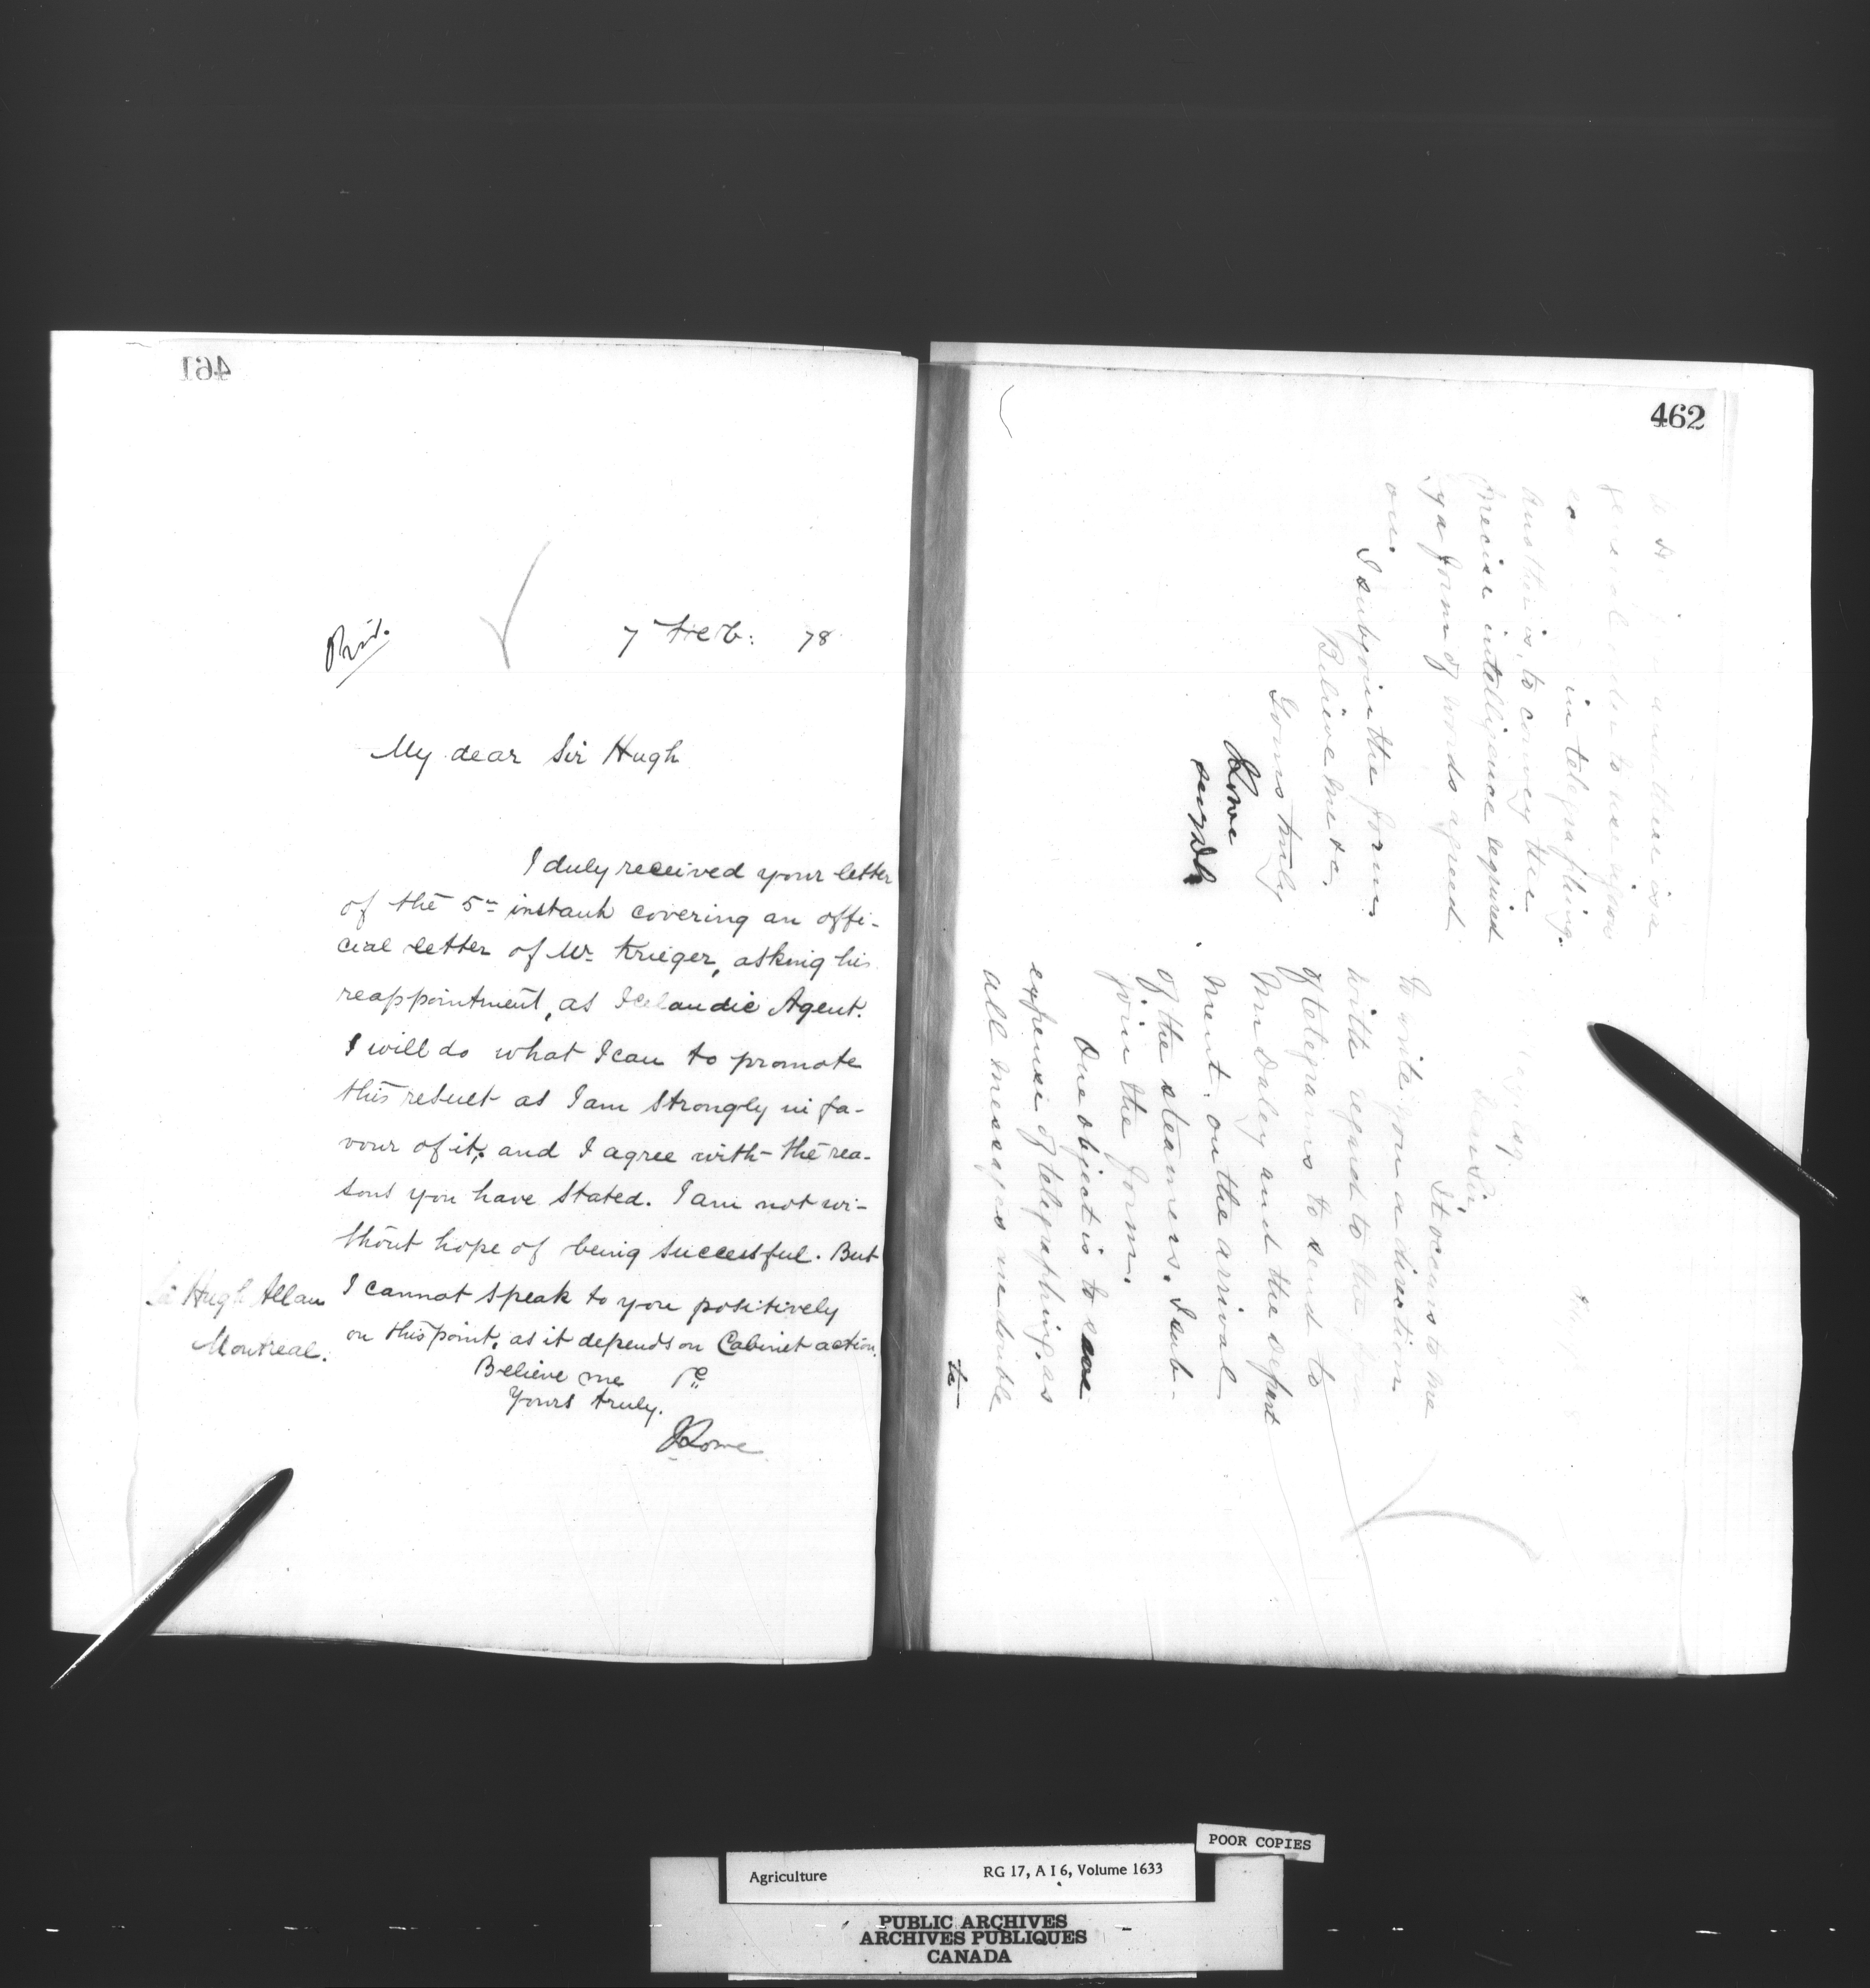 461
Priv.
7 Feb: 78
My dear Sir Hugh
I duly received your letter
of the 5th instant covering an offi-
cial letter of Mr Krieger, asking his
reappointment, as Icelandic Agent.
I will do what I can to promote
this result as I am strongly in fa-
vour of it, and I agree with the rea-
sons you have stated. I am not wi-
thout hope of being successful. But
I cannot speak to you positively
on this point, as it depends on Cabinet action.
Believe me &c
Yours truly.
J Lowe
Sir Hugh Allan
Montreal.
462
Dear Sir,
It occurs to me
to write you a direction
with regard to the form
of telegrams to send to
Mr Daley and the depart
ment, on the arrival
of the steamers. I sub-
join the form.
One object is to save
expense of telegraphing, as
all messages double
to
in telegraphing.
Another is, to convey the
precise intelligence required
by a form of words agreed
on.
I subjoin the form.
Believe me &c.
Yours truly
Lowe
Secy DA
POOR COPIES
Agriculture RG 17, A I 6, Volume 1633
PUBLIC ARCHIVES
ARCHIVES PUBLIQUES
CANADA